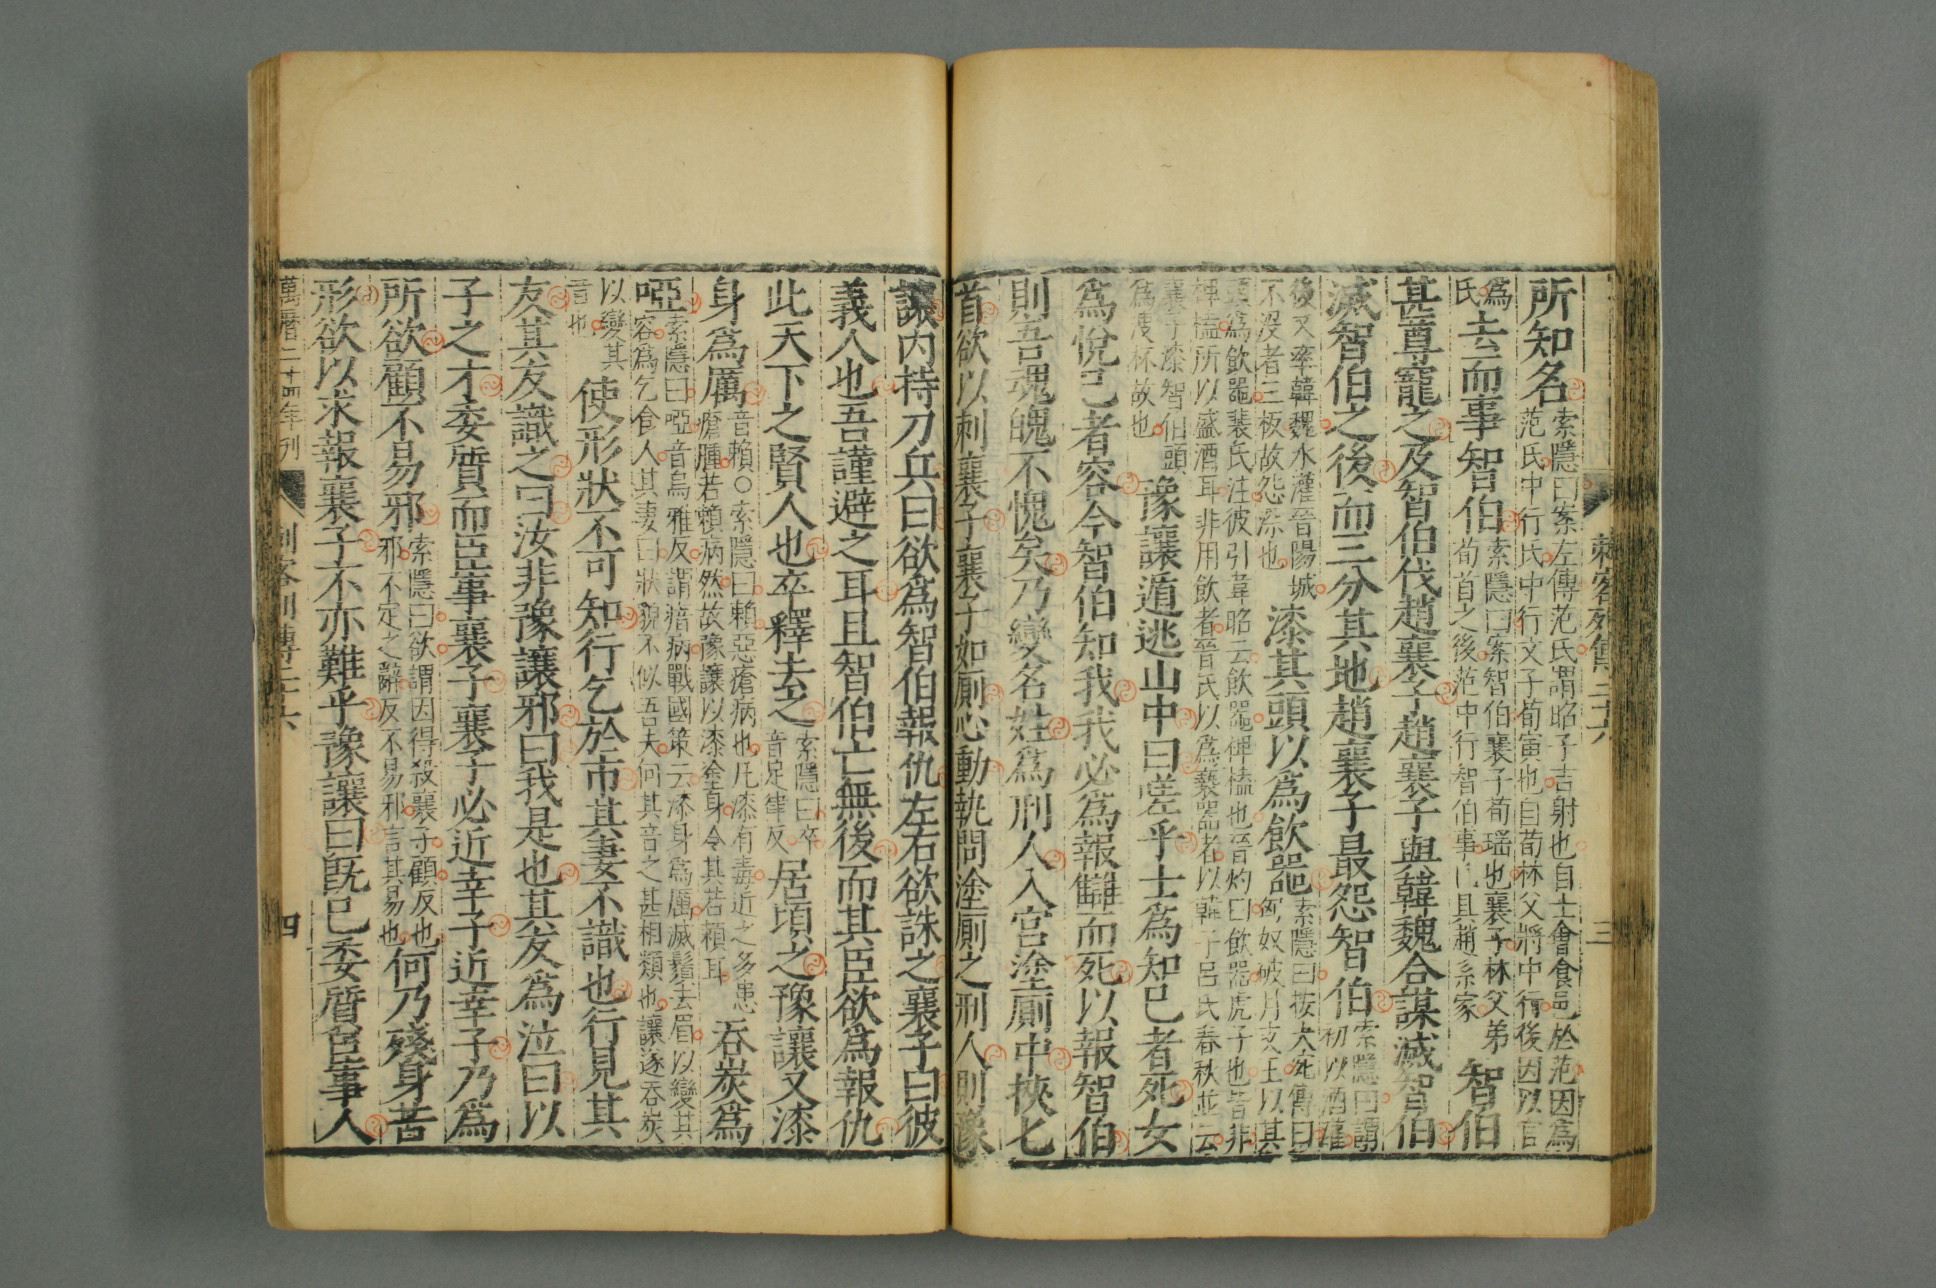 刺客列傳二十六 三
所知名
索隱曰案左傳范氏謂昭子吉射也自士會食邑於范因爲
范氏中行氏中行文子荀寅也自荀林父將中行後因以官
爲
氏
去而事智伯
索隱曰案智伯襄子荀瑤也襄子林父弟
荀首之後范中行智伯事已具趙系家
智伯
甚尊寵之及智伯伐趙襄子趙襄子與韓魏合謀滅智伯
滅智伯之後而三分其地趙襄子最怨智伯
索隱曰謂
初以酒灌
後又率韓魏水灌晉陽城
不沒者三板故怨深也
漆其頭以爲飲器
索隱曰按大宛傳曰
匈奴破月支王以其
頭爲飲器裴氏注彼引韋昭云飲器椑榼也晉灼曰飲器虎子也皆非
椑榼所以盛酒耳非用飲者晉氏以爲褻器者以韓子呂氏春秋並云
襄子漆智伯頭
爲溲杯故也
豫讓遁逃山中曰嗟乎士爲知己者死女
爲悅己者容今智伯知我我必爲報讎而死以報智伯
則吾魂魄不愧矣乃變名姓爲刑人入宮塗廁中挾匕
首欲以刺襄子襄子如廁心動執問塗廁之刑人則豫
讓內持刀兵曰欲爲智伯報仇左右欲誅之襄子曰彼
義人也吾謹避之耳且智伯亡無後而其臣欲爲報仇
此天下之賢人也卒釋去之
索隱曰卒
音足律反
居頃之豫讓又漆
身爲厲
音賴○索隱曰賴惡瘡病也凡漆有毒近之多患
瘡腫若賴病然故豫讓以漆塗身令其若癩耳
吞炭爲
啞
索隱曰啞音烏雅反謂瘖病戰國策云漆身爲厲滅鬚去眉以變其
容爲乞食人其妻曰狀貌不似吾夫何其音之甚相類也讓遂吞炭
以變其
音也
使形狀不可知行乞於市其妻不識也行見其
友其友識之曰汝非豫讓邪曰我是也其友爲泣曰以
子之才委質而臣事襄子襄子必近幸子近幸子乃爲
所欲顧不易邪
索隱曰欲謂因得殺襄子顧反也
邪不定之辭反不易邪言其易也
何乃殘身苦
形欲以求報襄子不亦難乎豫讓曰既已委質臣事人
萬曆二十四年刊
刺客列傳二十六 四